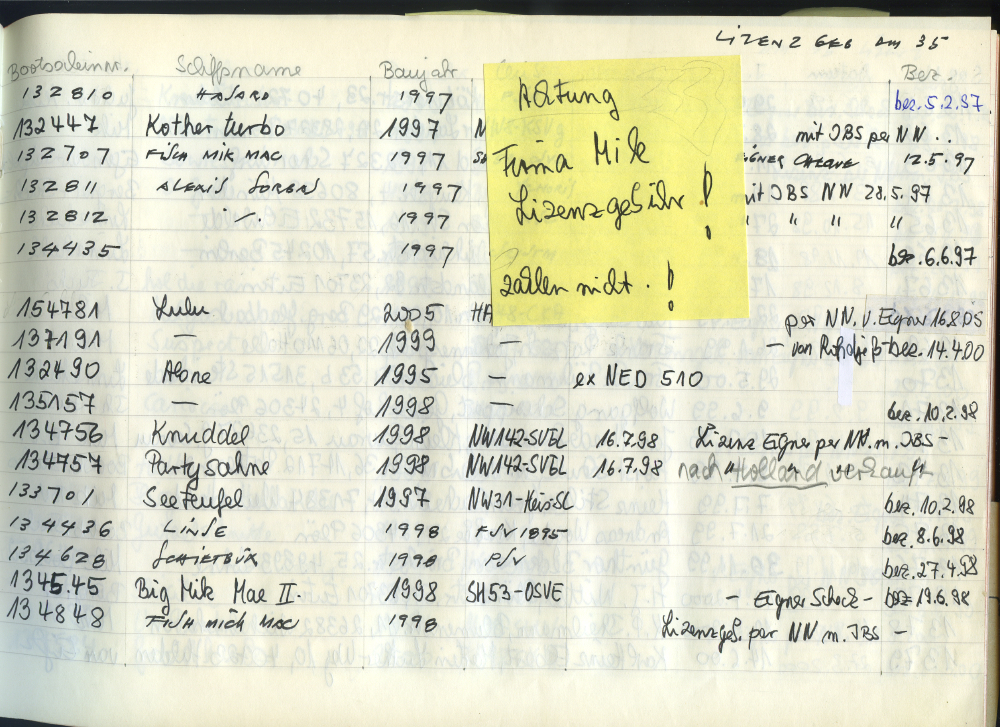 LIZENZ GEB DM 35
Bootsscheinnr. Schiffsname Baujahr Bez.
132810 HASARD 1997 bez. 5.2.97
132447 Kother turbo 1997 mit JBS per NN.
132707 FiSCH MiK MAC 1997 12.5.97
132811 ALEXIS SORBAS 1997 mit JBS NN 28.5.97
132812 -"- 1997 " " " "
134435 1997 bez. 6.6.97
Achtung
Firma Mik
Lizenzgebühr !
zahlen nicht. !
154781 Lulu 2005 HA per NN. v. Eigner 16.8.05
137191 — 1999 — — von bez. 14.4.00
132490 Alone 1995 — ex NED 510
135157 — 1998 — bez. 10.2.98
134756 Knuddel 1998 NW142-SVEL 16.7.98 Lizenz Eigner per NN. m. JBS -
134757 Partysahne 1998 NW142-SVEL 16.7.98 nach Holland verkauft
133701 Seeteufel 1997 NW31- bez. 10.2.98
134436 LINSE 1998 FSV1895 bez. 8.6.98
134628 SCHIETBÜX 1998 PSV bez. 27.4.98
134545 Big Mik Mac II. 1998 SH53-OSVE - Eigner Scheck - bez 19.6.98
134848 FISH mich MAC 1998 Lizenzgeb. per NN m. JBS -